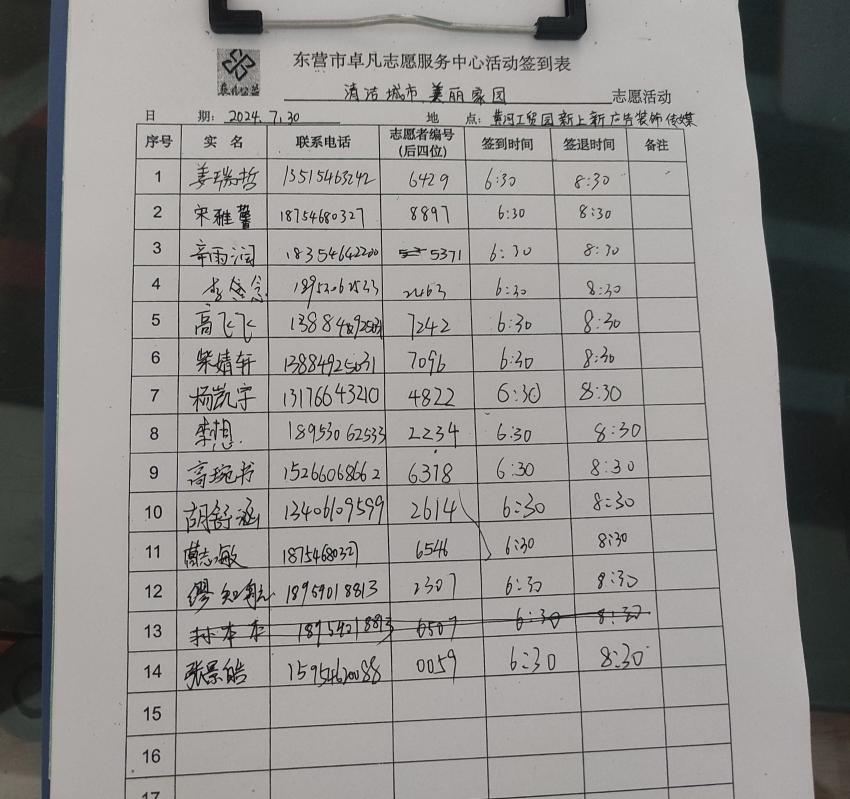 东营市卓凡志愿服务中心活动签到表
清洁城市 美丽家园 志愿活动
日 期: 2024.7.30 地 点: 黄河工贸园新上新广告装饰传媒
序号 实 名 联系电话 志愿者编号(后四位) 签到时间 签退时间 备注
1 姜瑞哲 13515463242 6429 6:30 8:30
2 宋雅馨 18754680327 8897 6:30 8:30
3 辛雨润 18354642200 5371 6:30 8:30
4 18953062533 2263 6:30 8:30
5 高飞飞 13884925031 7242 6:30 8:30
6 柴婧轩 13884925031 7096 6:30 8:30
7 杨凯宇 13176643210 4822 6:30 8:30
8 李想. 18953062533 2234 6:30 8:30
9 高琬书 15266068662 6378 6:30 8:30
10 胡舒涵 13406109599 2614 6:30 8:30
11 敏 18754680327 6546 6:30 8:30
12 缪知航 18959018813 2307 6:30 8:30
13 6507 6:30 8:30
14 张景皓 15954620088 0059 6:30 8:30
15
16
17